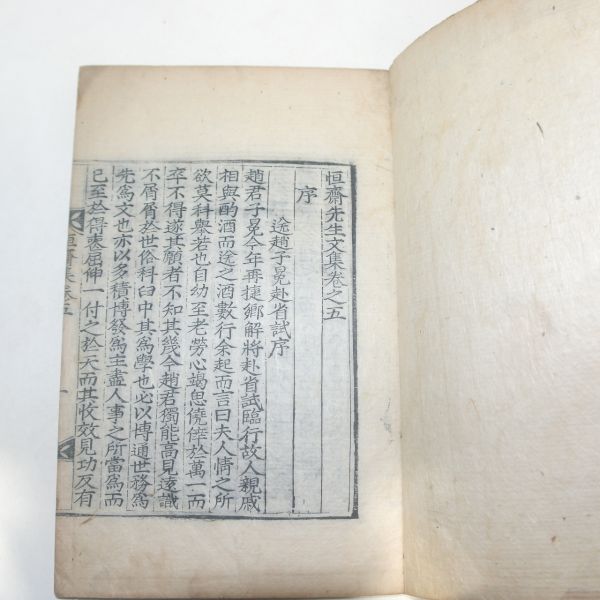 恒齋先生文集卷之五
序
送趙子晃赴省試序
趙君子晃今年再捷鄉解將赴省試臨行故人親戚
相與酌酒而送之酒數行余起而言曰夫人情之所
欲莫科舉若也自幼至老勞心竭思僥倖於萬一而
卒不得遂其願者不知其幾今趙君獨能高見遠識
不屑屑於世俗科臼中其爲學也必以博通世務爲
先爲文也亦以多積博發爲主盡人事之所當爲而
已至於得喪屈伸一付之於天而其收效見功及有
恒齋集卷五
一